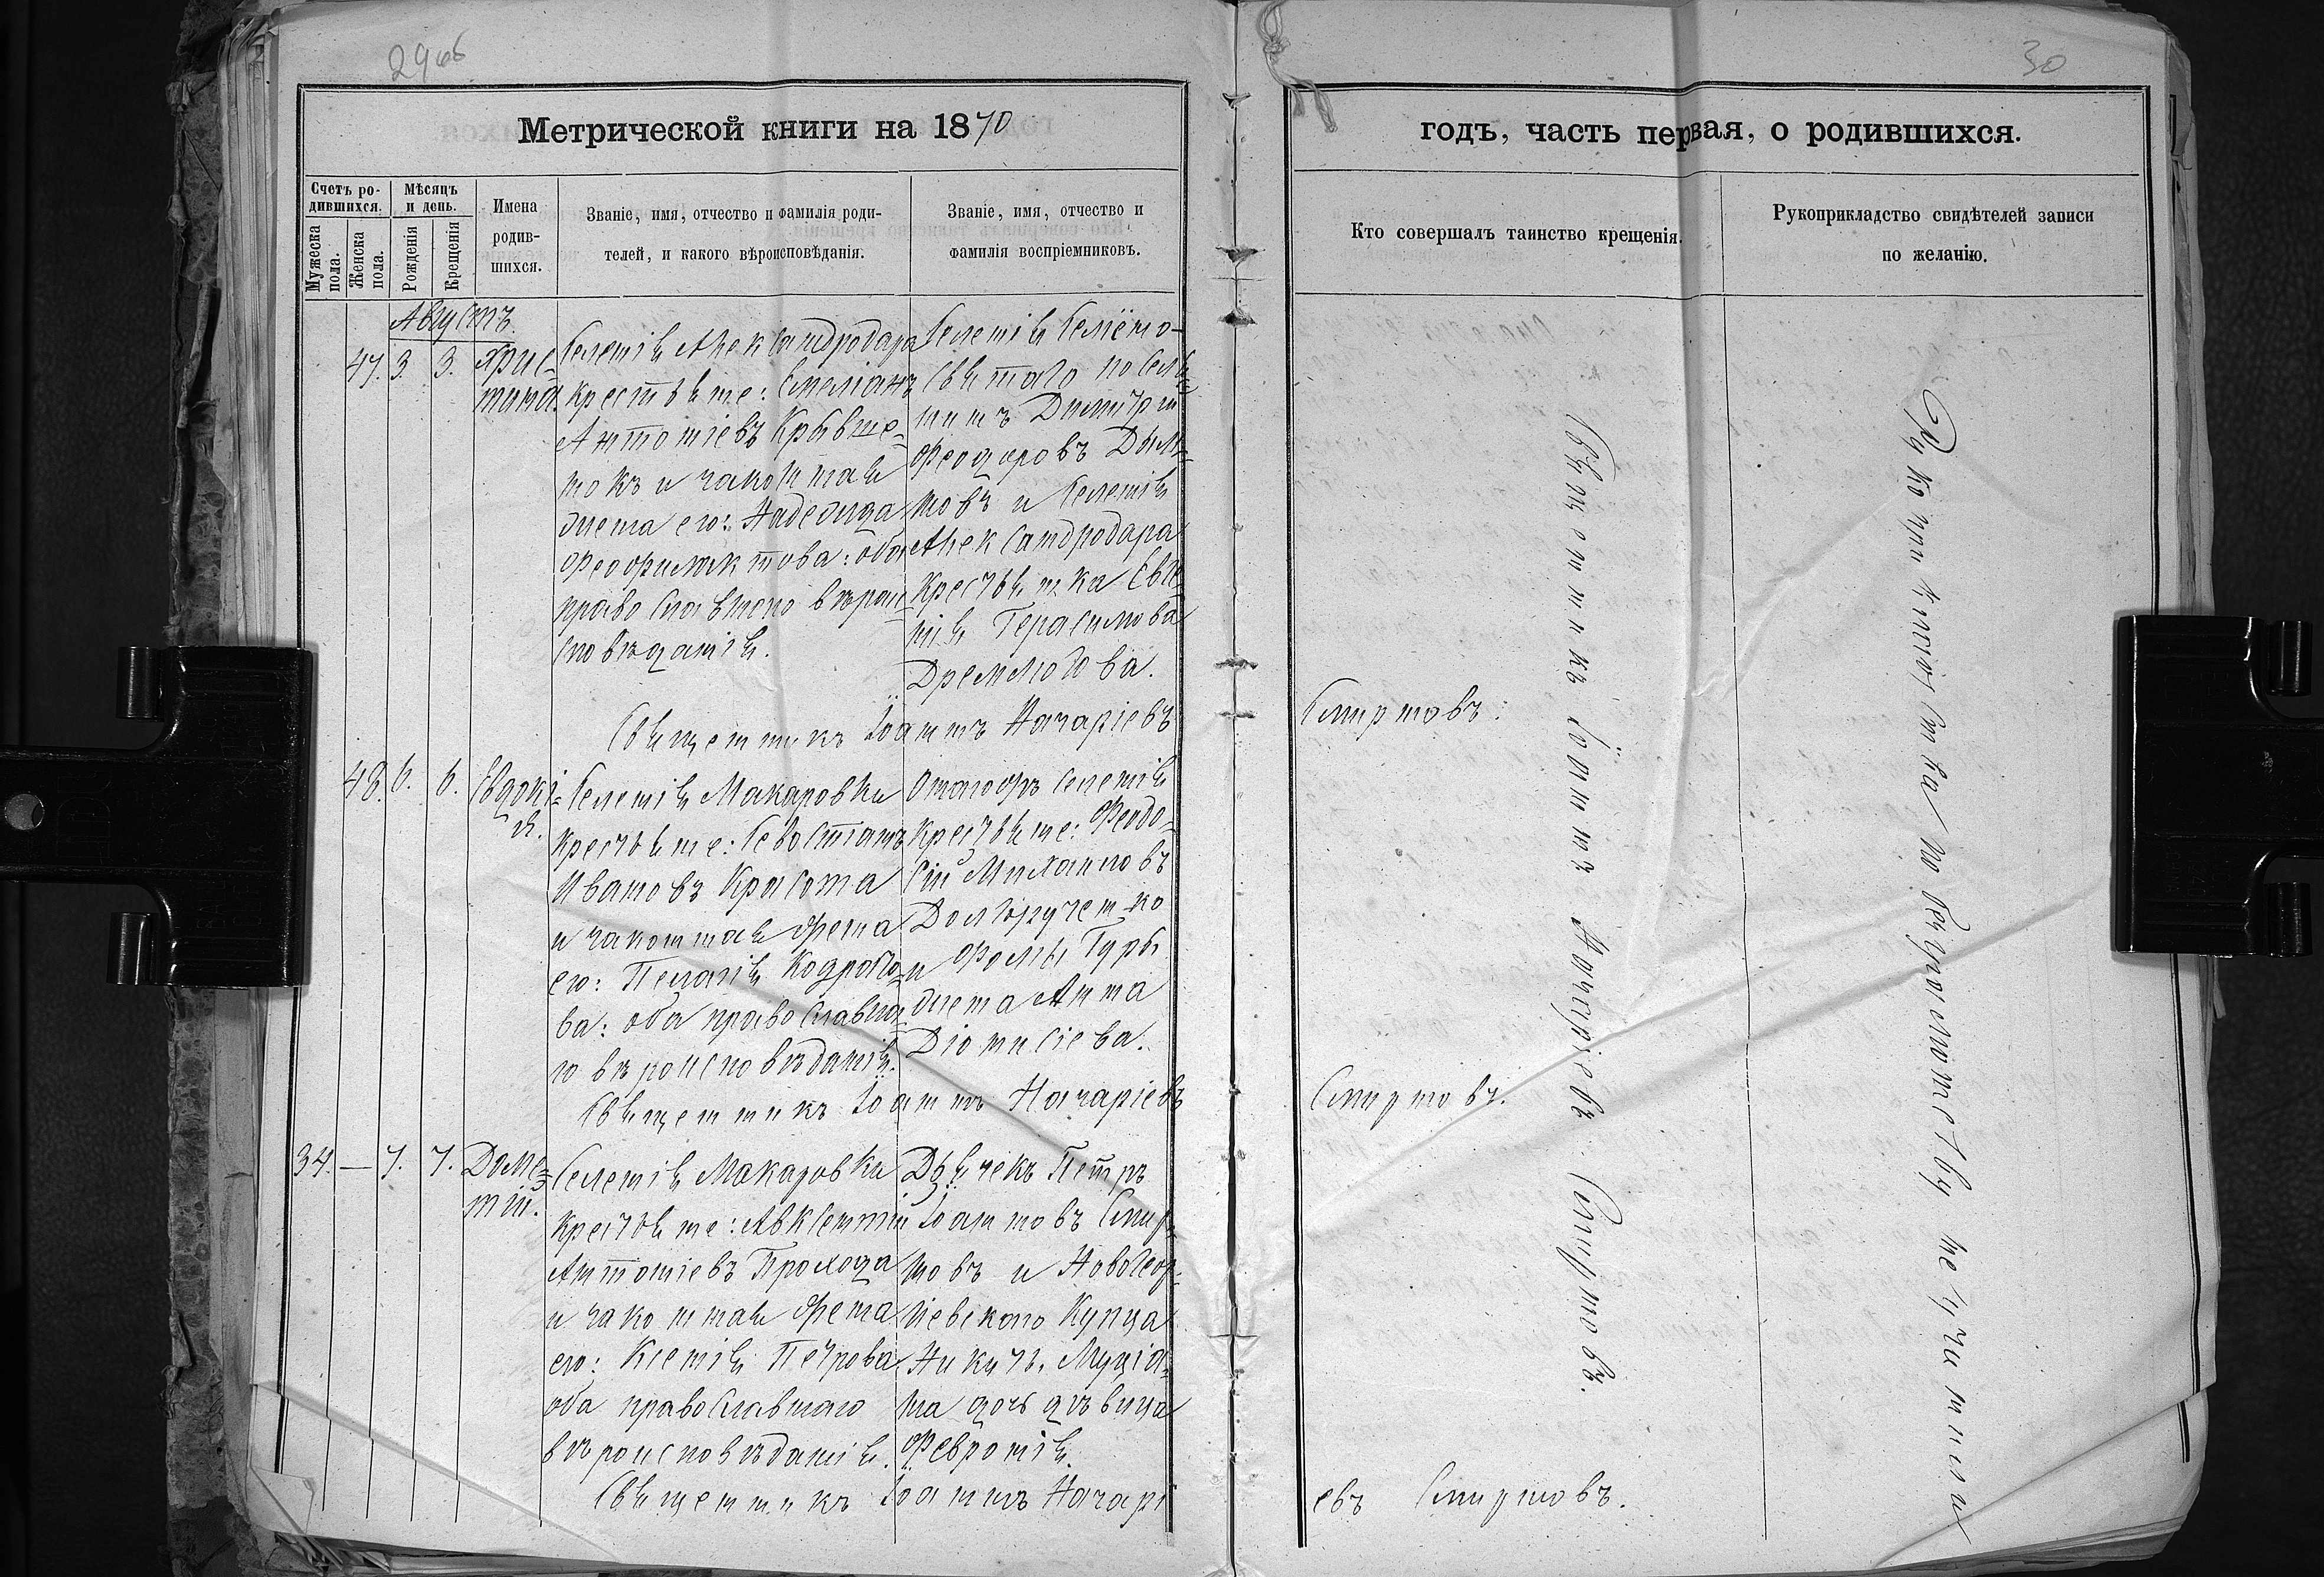 29об
30
Метрической книги на 1870
годъ, часть первая, о родившихся.
Счетъ ро-
дившихся.
Мужеска
пола.
Женска
пола.
Мѣсяцъ
и день.
Рожденія
Крещенія
Имена
родив-
шихся.
Званіе, имя, отчество и фамилія роди-
телей, и какого вѣроисповѣданія.
Званіе, имя, отчество и
фамилія воспріемниковъ.
Кто совершалъ таинство крещенія.
Рукоприкладство свидѣтелей записи
по желанію.
Августъ.
47. 3. 3.
Хрис-
тина.
Селенія Александродара
крестьяне: Емеліанъ
Антоніевъ Крывше-
нокъ и законная
жена его:
Феофилактова: оба
православнаго вѣрои-
сповѣданія.
Селенія
поселя-
нинъ Димитрій
Феодоровъ Дым-
новъ и селенія
Александродара
крестьянка Евге-
нія Герасимова
Дремлюгова.
Священникъ Іоаннъ Назаріевъ
Смирновъ:
48. 6. 6.
Евдокі-
я.
Селенія Макаровки
крестьяне: Севостіанъ
Ивановъ Красота
и законная жена
его: Пелагія Кодрато-
ва: оба православна-
го вѣроисповѣданія.
селенія
крестьяне: Феодо-
сій Михаиловъ
Долгрученко
и Фомы Гуры
жена Анна
Діонисіева.
Священникъ Іоаннъ Назаріевъ
Смирновъ.
34. — 7. 7.
Доме-
тій.
Селенія Макаровки
крестьяне: Авксентій
Антоніевъ Прохода
и законная жена
его: Ксенія Петрова
оба православнаго
вѣроисповѣданія.
Дьячекъ Петръ
Іоанновъ Смир-
новъ и Новогеор-
гіевскаго купца
дочь дѣвица
Февронія.
Священникъ Іоаннъ Назарі
евъ Смирновъ.
Священникъ Іоаннъ Назаріевъ Смирновъ.
Рукоприкладства по безграмотству не учинили